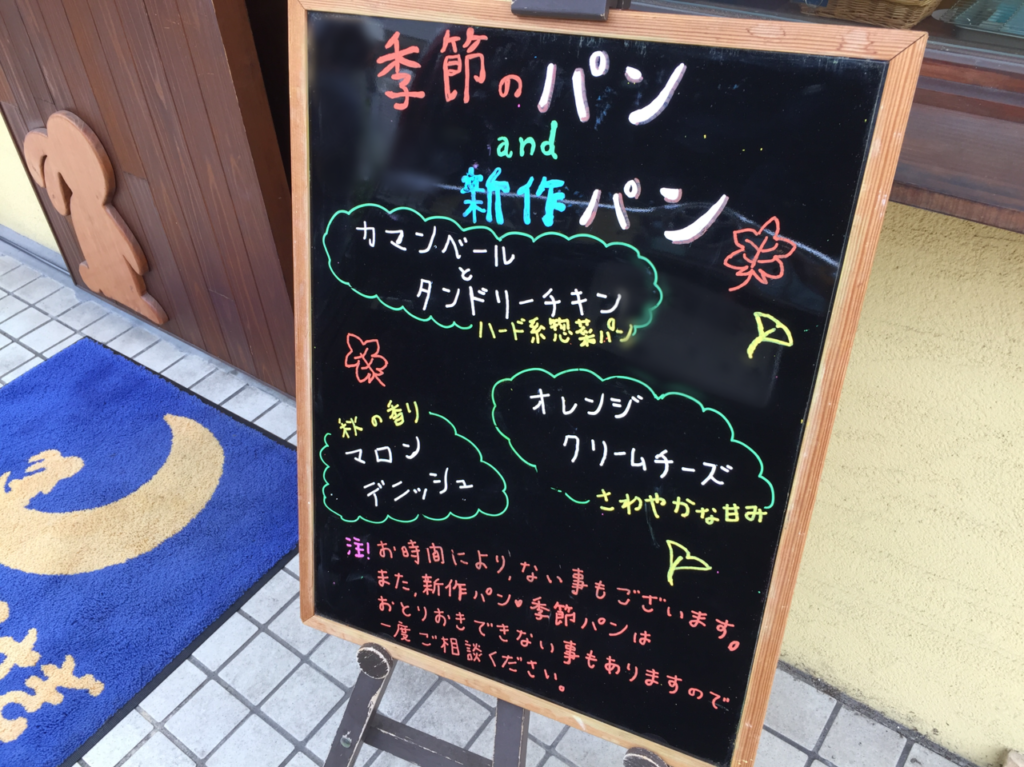 季節のパン
and
新作パン
カマンベール
と
タンドリーチキン
ハード系惣菜パン
オレンジ
クリームチーズ
さわやかな甘み
秋の香り
マロン
デニッシュ
注!お時間により,ない事もございます。
また,新作パン♥季節パンは
おとりおきできない事もありますので
一度ご相談ください。